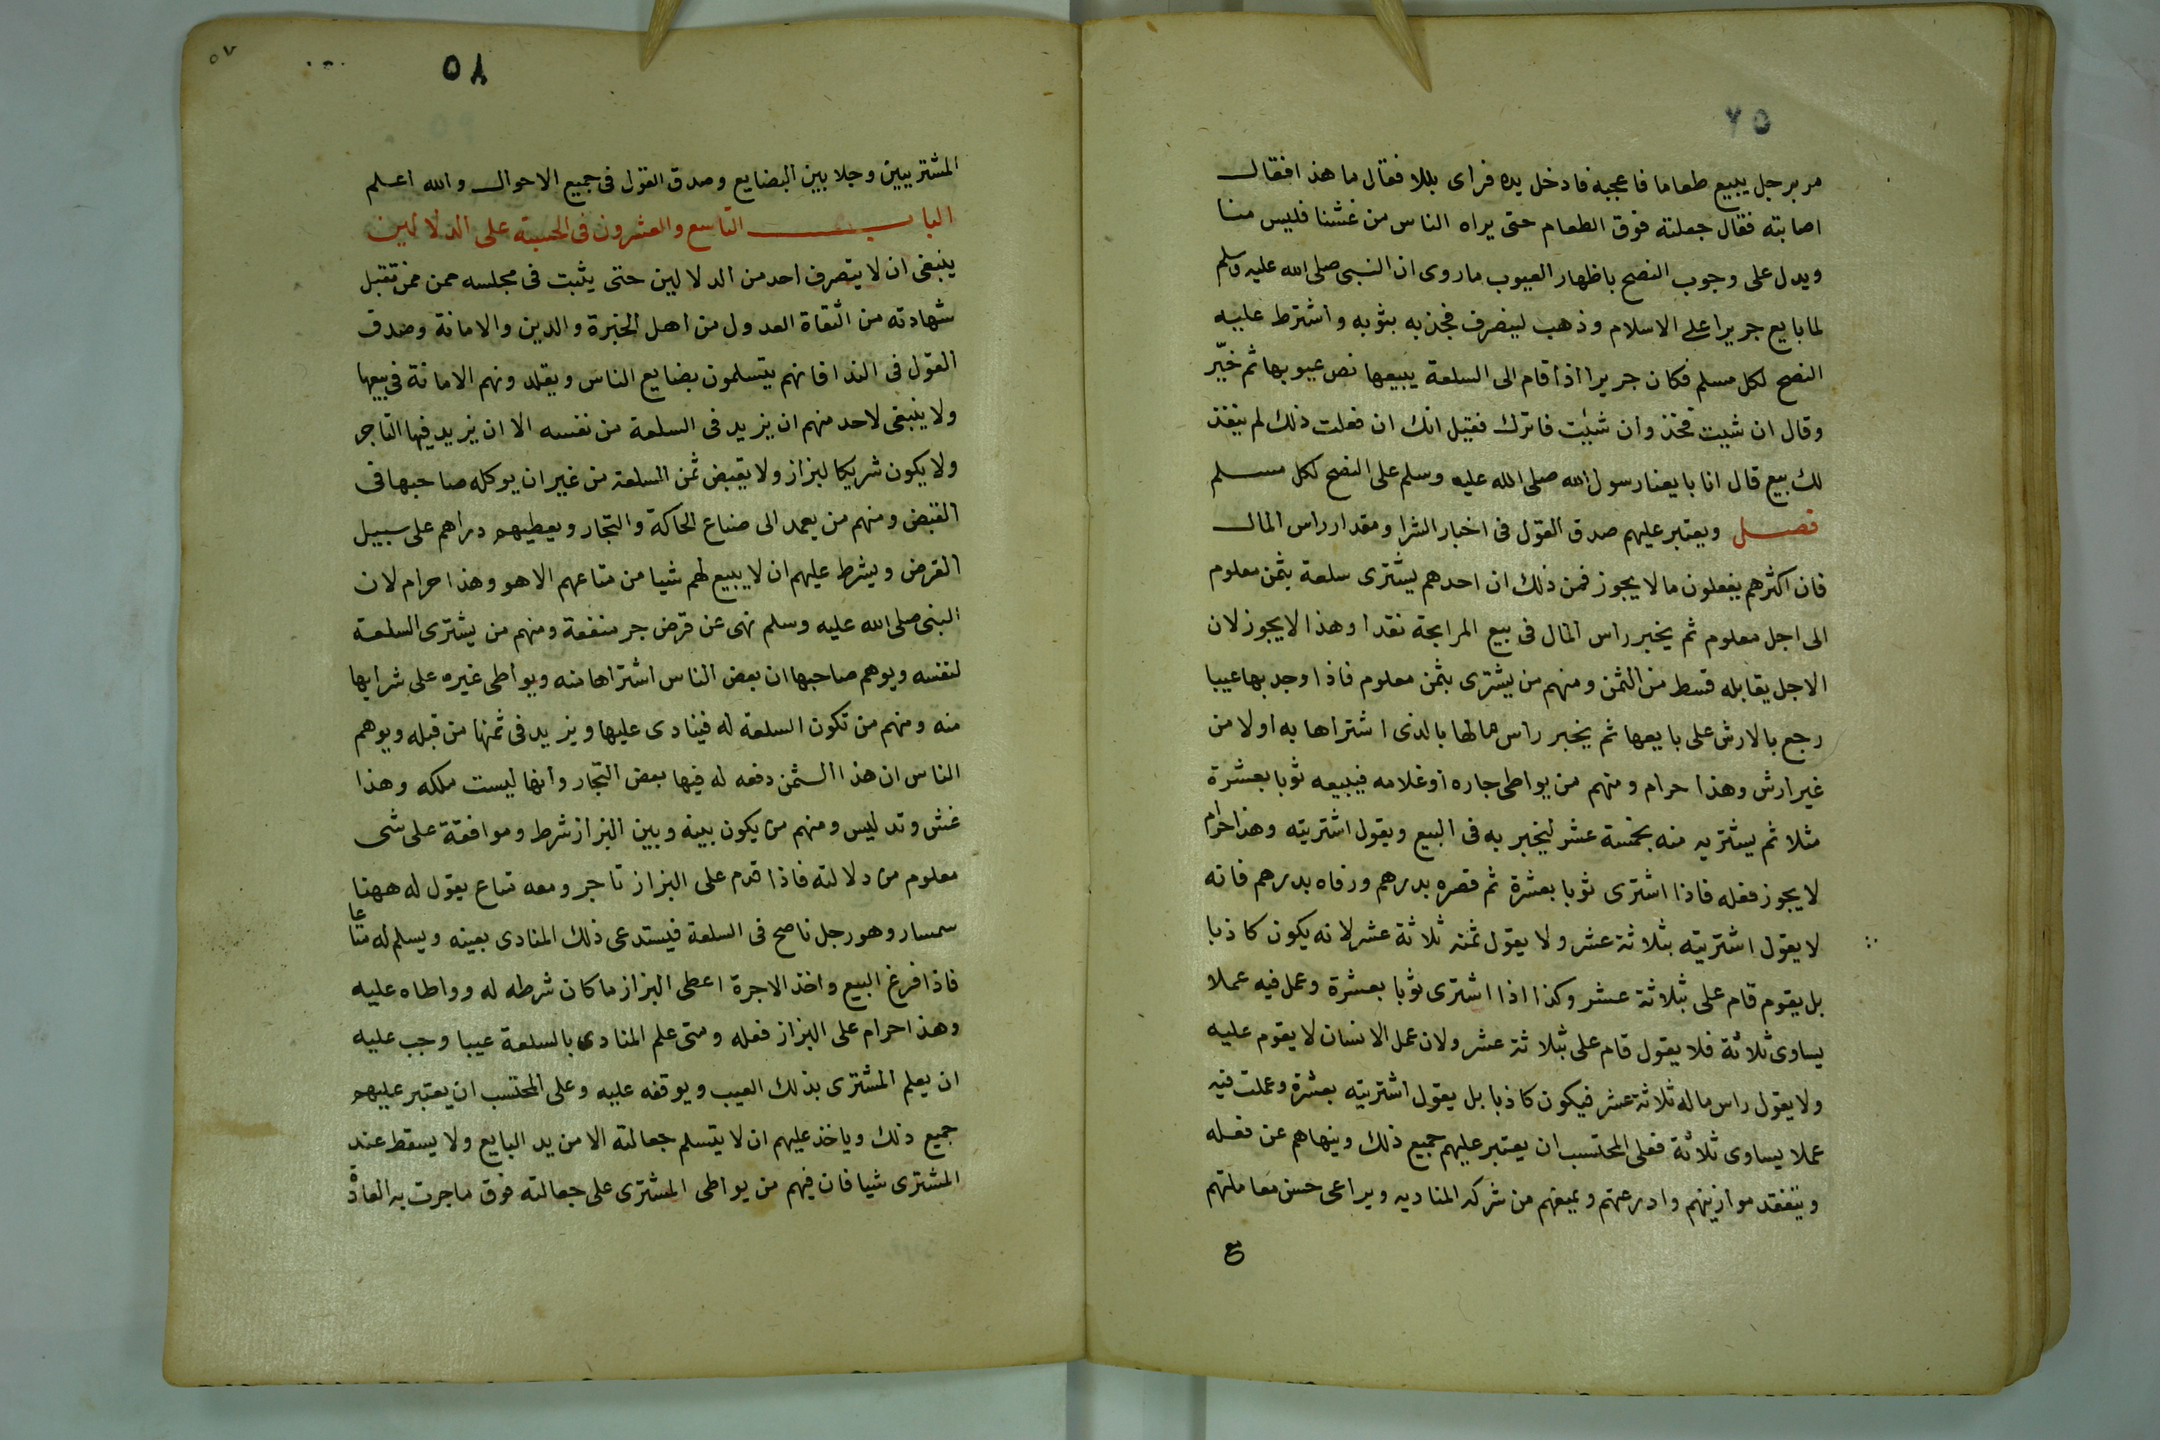 ٥٧
مر برجل يبيع طعاما فاعجبه فادخل يده فراى بللا فقال ما هذا فقال
اصابته فقال جعلته فوق الطعام حتى يراه الناس من غشنا فليس منا
ويدل على وجوب النصح باظهار العيوب ما روى ان النبى صلى الله عليه وسلم
لما بايع جريرا على الاسلام وذهب لينصرف فجذبه بثوبه واشترط عليه
النصح لكل مسلم فكان جريرا اذا قام الى السلعة يبيعها نص عيوبها ثم خيّر
وقال ان شيت فخذ وان شئت فاترك فقيل انك ان فعلت ذلك لم ينفذ
لك بيع قال انا بايعنا رسول الله صلى الله عليه وسلم على النصح لكل مسلم
فصل ويعتبر عليهم صدق القول فى اخبار الشرا ومقدار راس المال
فان اكثرهم يفعلون ما لا يجوز فمن ذلك ان احدهم يشترى سلعة بثمن معلوم
الى اجل معلوم ثم يخبر راس المال فى بيع المرابحة نقدا وهذا لا يجوز لان
الاجل يقابله قسط من الثمن ومنهم من يشترى بثمن معلوم فاذا وجد بها عيبا
رجع بالارش على بايعها ثم يخبر راس مالها بالذى اشتراها به اولا من
غير ارش وهذا حرام ومنهم من يواطى جاره او غلامه فيبيعه ثوبا بعشرة
مثلا ثم يشتريه منه بخمسة عشر ليخبر به فى البيع ويقول اشتريته وهذا حرام
لا يجوز فعله فاذا اشترى ثوبا بعشرة ثم قصره بدرهم ورفاه بدرهم فانه
لا يقول اشتريته بثلاثة عشر ولا يقول ثمنه ثلاثة عشر لانه يكون كاذبا
بل يقوم قام على بثلاثة عشر وكذا اذا اشترى ثوبا بعشرة وعمل فيه عملا
يساوى ثلاثة فلا يقول قام على بثلاثة عشر ولان عمل الانسان لا يقوم عليه
ولا يقول راس ماله ثلاثة عشر فيكون كاذبا بل يقول اشتريته بعشرة وعملت فيه
عملا يساوى ثلاثة فعلى المحتسب ان يعتبر عليهم جميع ذلك وينهاهم عن فعله
ويتفقد موازينهم وادرعتهم ويمنعهم من شركه المناديه ويراعى حسن معاملتهم
٥٧
٥٨
المشتريين وجلابين البضايع وصدق القول فى جميع الاحوال والله اعلم
الباب التاسع والعشرون فى الحسبة على الدلالين
ينبغى ان لا يتصرف احد من الدلالين حتى يثبت فى مجلسه ممن تقبل
شهادته من الثقاة العدول من اهل الخبرة والدين والامانة وصدق
القول فى الندا فانهم يتسلمون بضايع الناس ويقلدونهم الامانة فى بيعها
ولا ينبغى لاحد منهم ان يزيد فى السلعة من نفسه الا ان يزيد فيها التاجر
ولا يكون شريكا لبزاز ولا يقبض ثمن السلعة من غير ان يوكله صاحبها فى
القبض ومنهم من يعمد الى صناع الحاكة والتجار ويعطيهم دراهم على سبيل
القرض ويشرط عليهم ان لا يبيع لهم شيا من متاعهم الا هو وهذا حرام لان
النبى صلى الله عليه وسلم نهى عن قرض جر منفعة ومنهم من يشترى السلعة
لنفسه ويوهم صاحبها ان بعض الناس اشتراها منه ويواطى غيره على شرايها
منه ومنهم من تكون السلعة له فينادى عليها ويزيد فى ثمنها من قبله ويوهم
الناس ان هذا الثمن دفعه له فيها بعض التجار وانها ليست ملكه وهذا
غش وتدليس ومنهم من يكون بينه وبين البزاز شرط وموافقة على شى
معلوم من دلالته فاذا قدم على البزاز تاجر ومعه متاع يقول له ههنا
سمسار وهو رجل ناصح فى السلعة فيستدعى ذلك المنادى بعينه ويسلم له متاعا
فاذا فرغ البيع واخذ الاجرة اعطى البزاز ما كان شرطه له وواطاه عليه
وهذا حرام على البزاز فعله ومتى علم المنادى بالسلعة عيبا وجب عليه
ان يعلم المشترى بذلك العيب ويوقفه عليه وعلى المحتسب ان يعتبر عليهم
جميع ذلك وياخذ عليهم ان لا يتسلم جعالته الا من يد البايع ولا يسقط عند
المشترى شيا فان فيهم من يواطى المشترى على جعالته فوق ما جرت به العادة